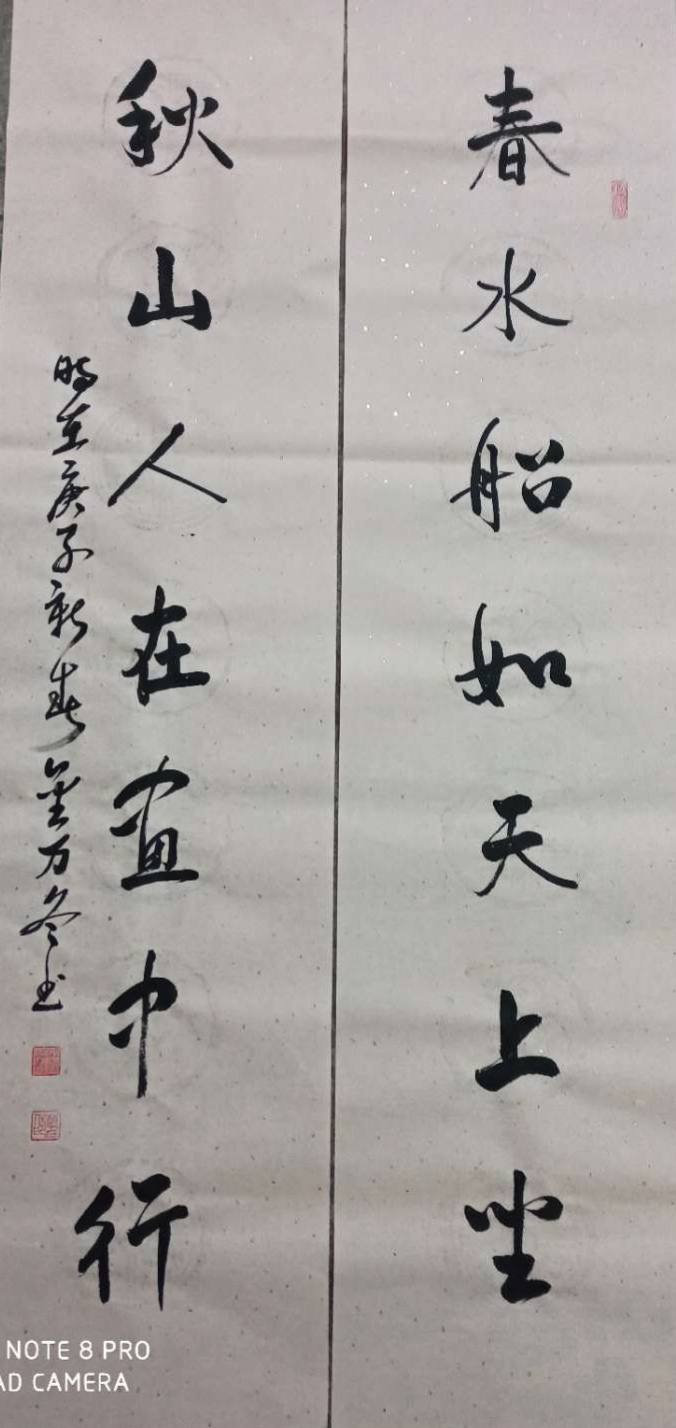 春水船如天上坐
秋山人在画中行
時在庚子新春金万冬书
NOTE 8 PRO
AD CAMERA